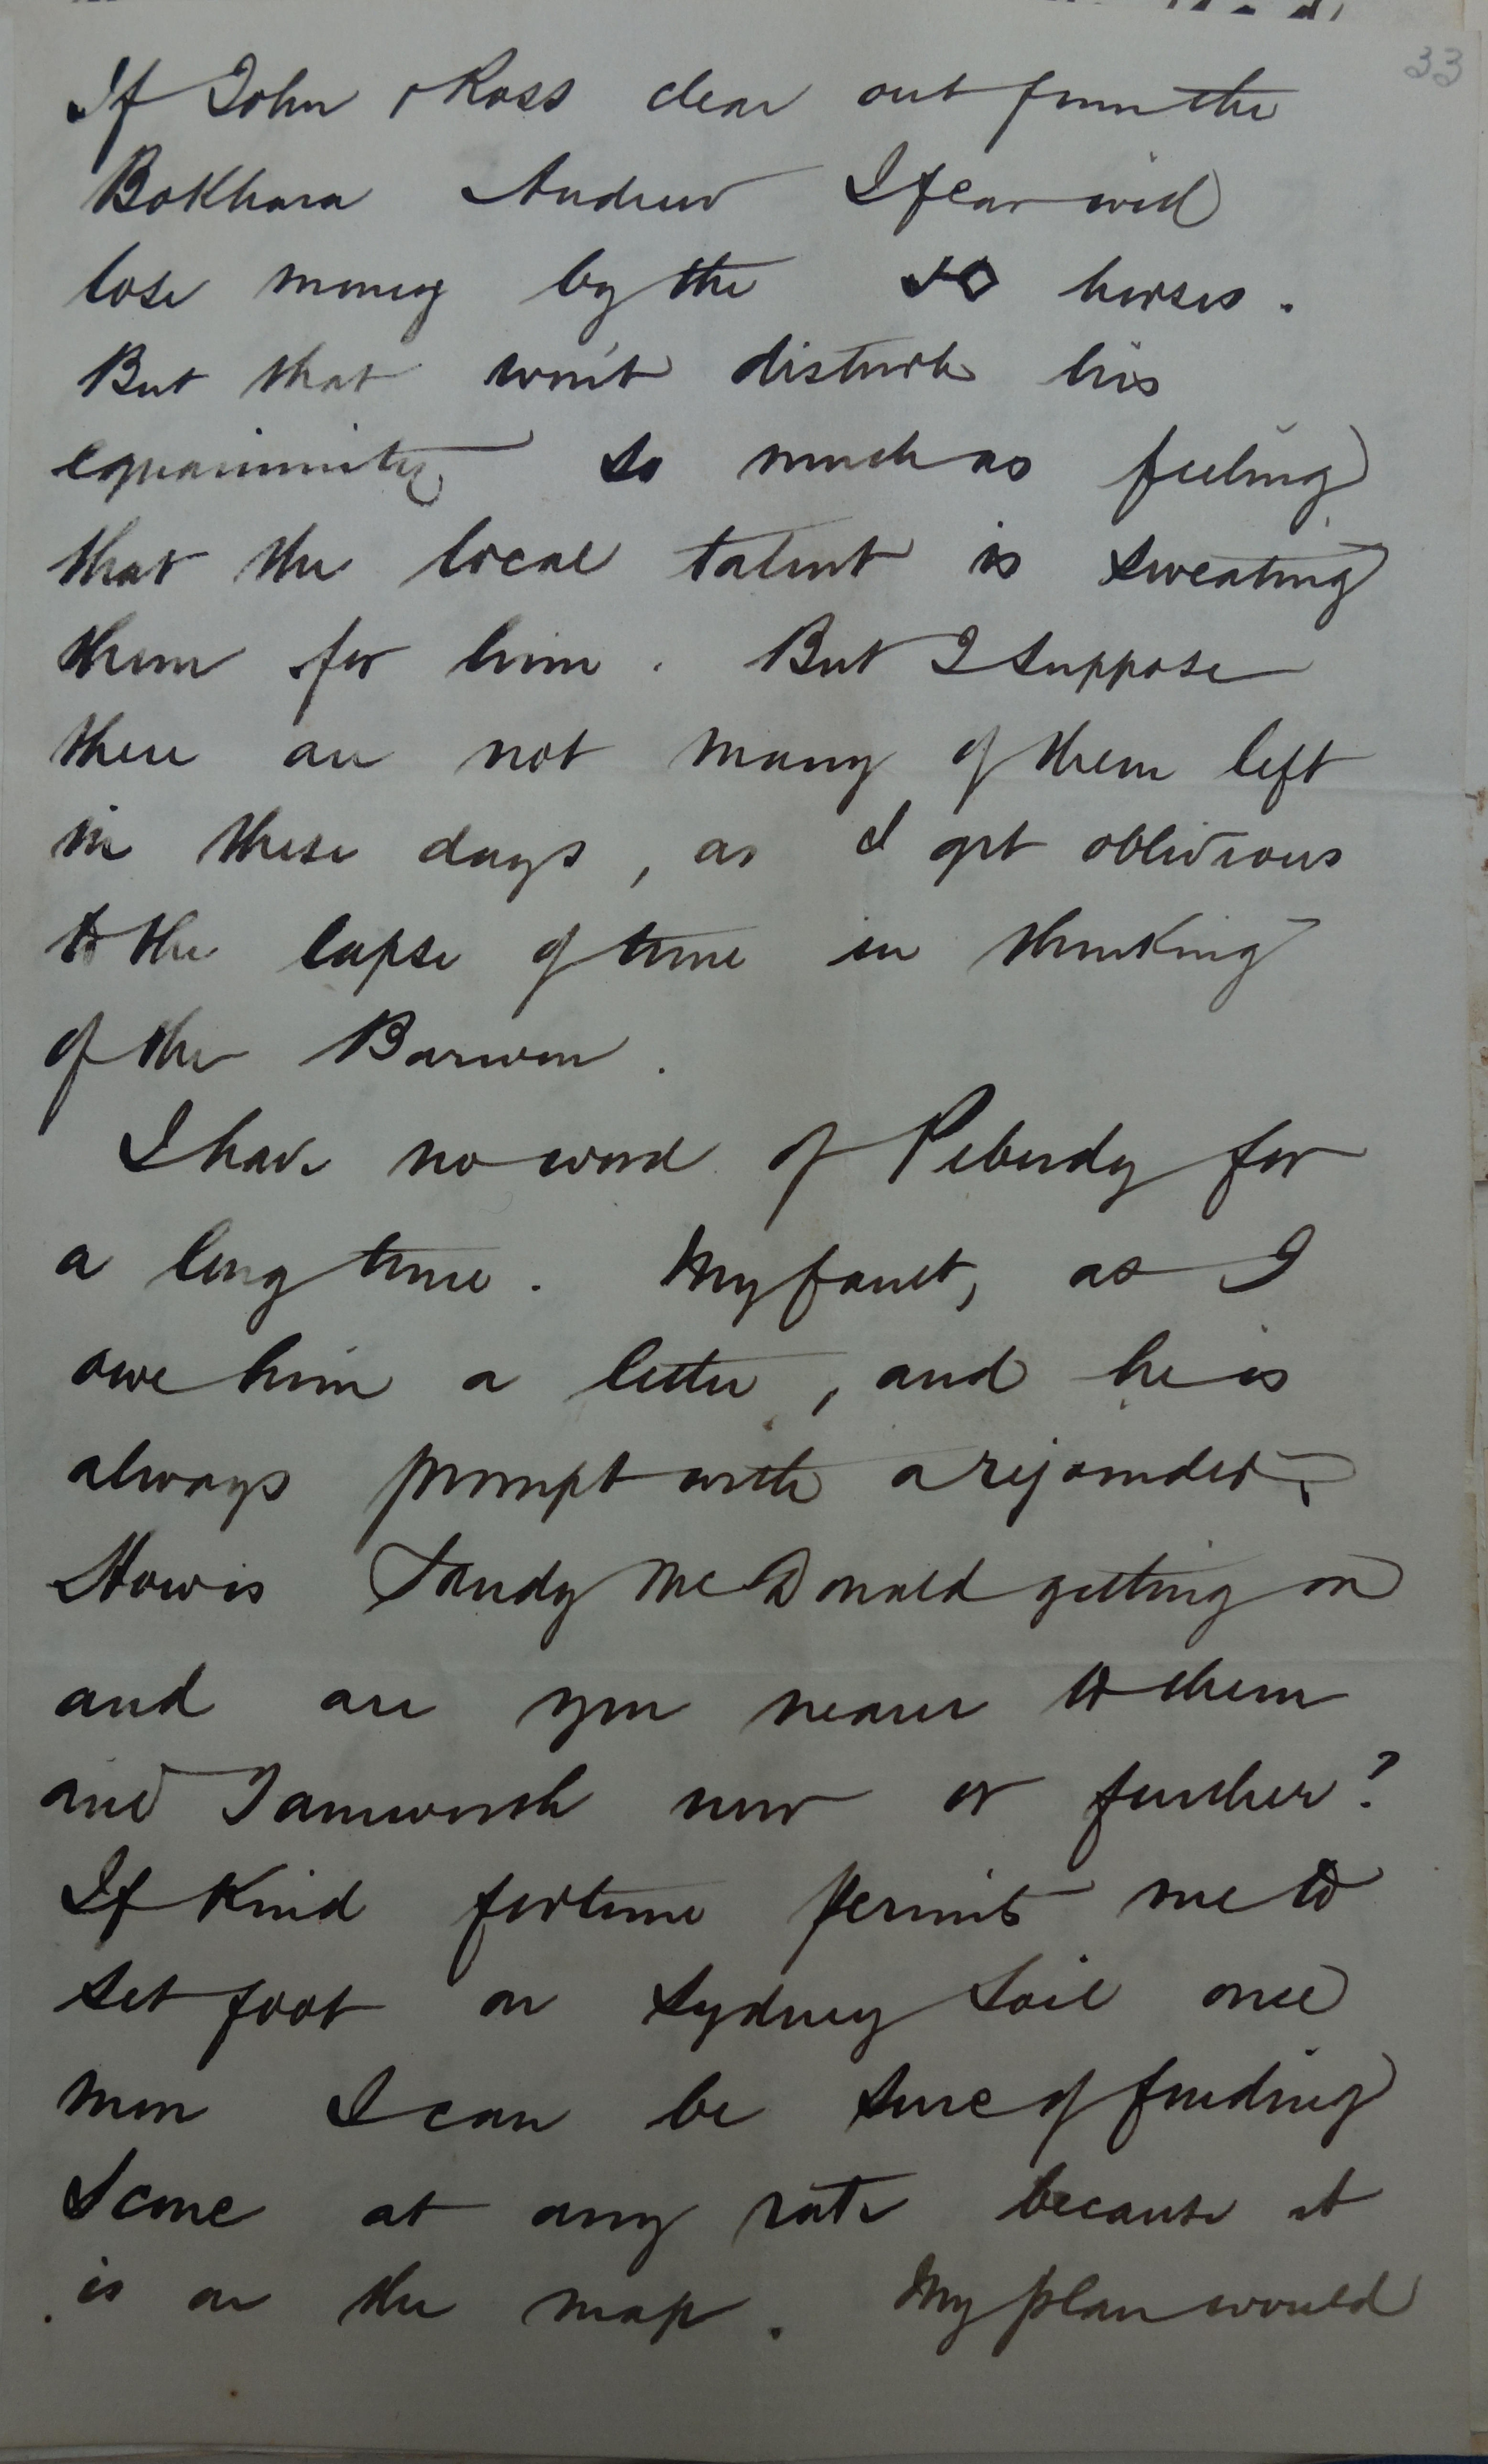 33
If John & Ross clear out from the
Bokhara Andrew I fear will
lose money by the 50 horses.
But that won't disturb his
equanimity so much as feeling
that the local talent is sweating
them for him. But I suppose
there are not many of them left
in these days, as I get oblivious
to the lapse of time in thinking
of the Barwon.
I have no word of Peberdy for
a long time. My fault, as I
owe him a letter, and he is
always prompt with a rejoinder.
How is Sandy McDonald getting on
and are you nearer to them
and Tamworth now or further?
If kind fortune permits me to
set foot on Sydney soil once
more I can be sure of finding
Scone at any rate because it
is on the map. My plan would